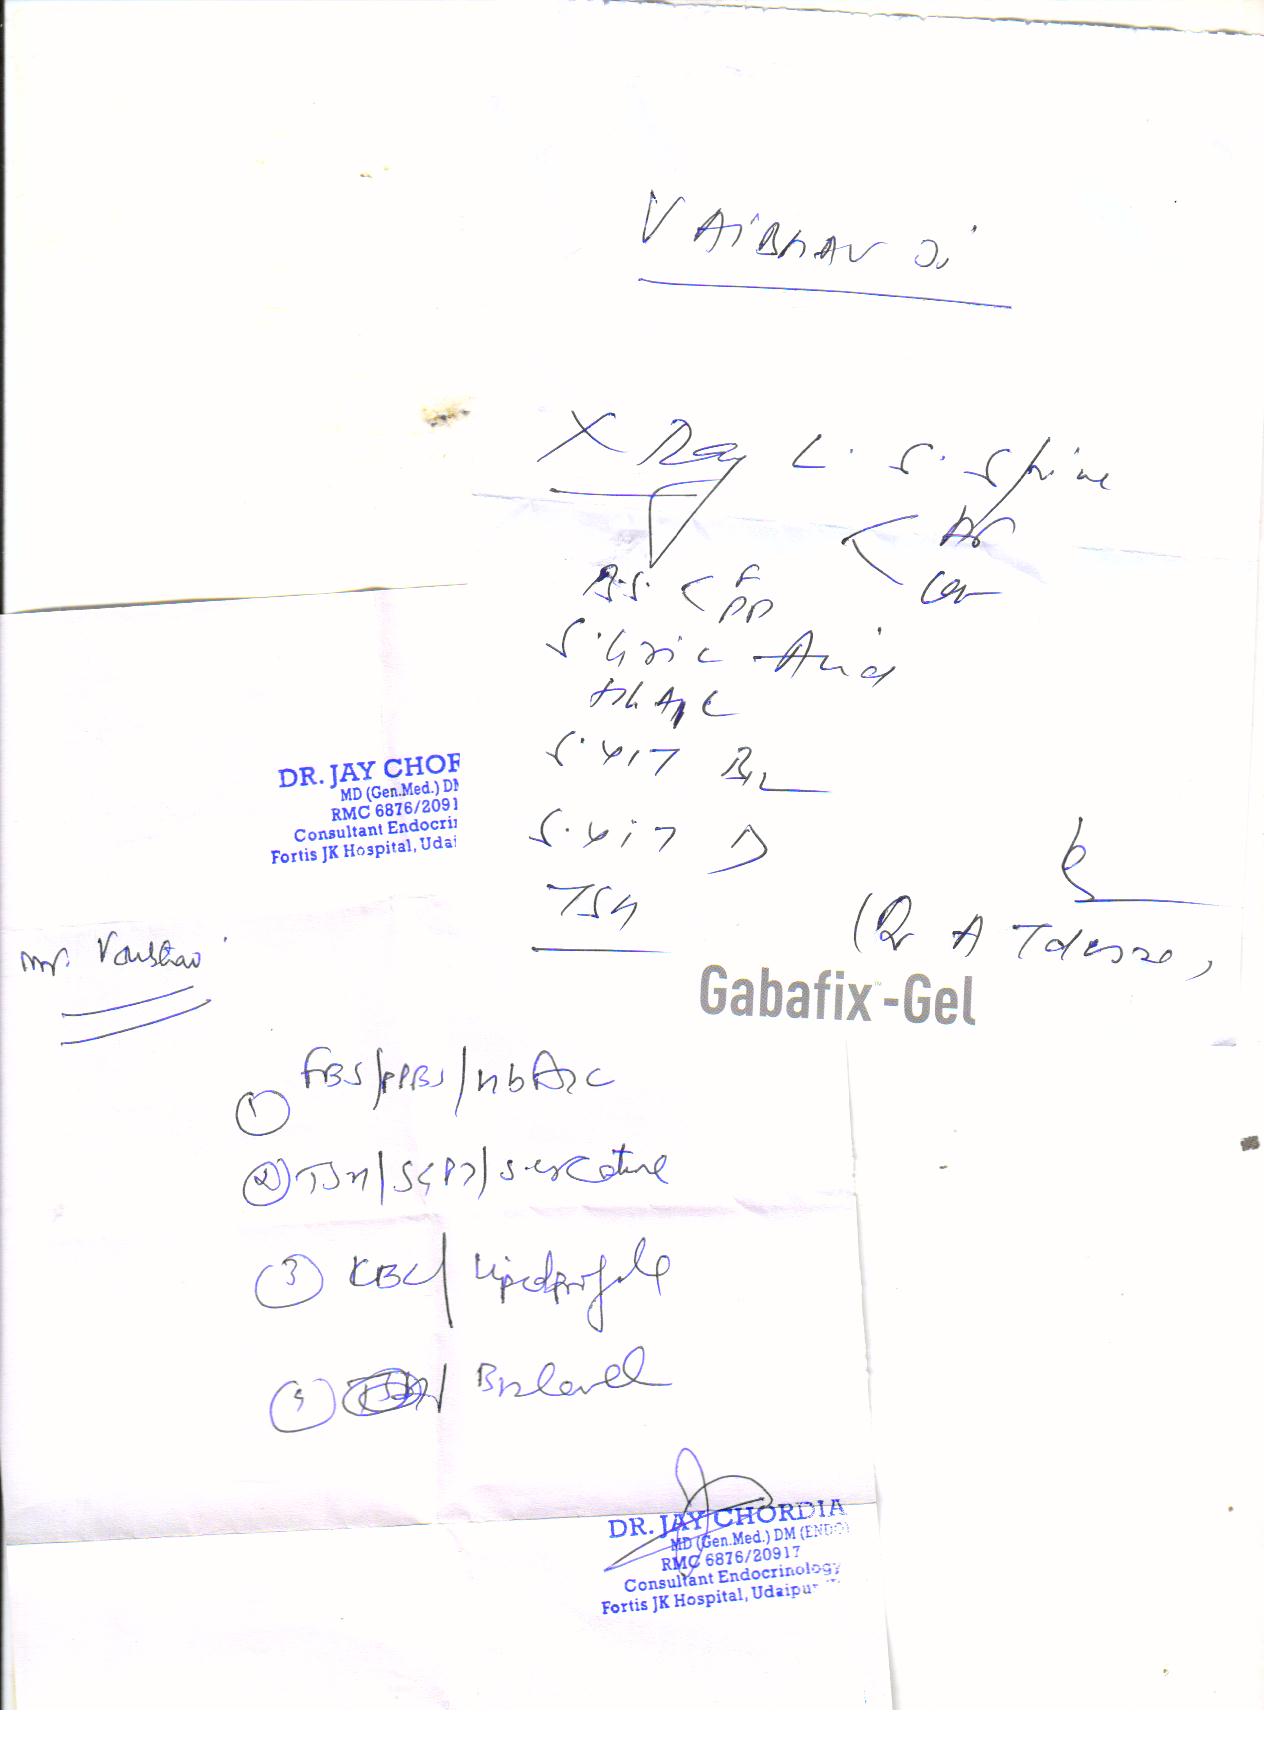 VAIBHAV Ji
X Ray L. S. Spine
AP
B.S. < F
Lat
PP
S. Uric Acid
Hb A1C
S. Vit B12
S. Vit D
TSH
(Dr A
Gabafix™-Gel
DR. JAY CHOR
MD (Gen.Med.) DM
RMC 6876/2091
Consultant Endocri
Fortis JK Hospital, Udai
Mr. Vaibhav
① FBS/PPBS/HbA1c
② TSH/SGPT/S. creatine
③ CBC/Lipid profile
④ B12 level
DR. JAY CHORDIA
MD (Gen.Med.) DM (ENDO)
RMC 6876/20917
Consultant Endocrinology
Fortis JK Hospital, Udaipur